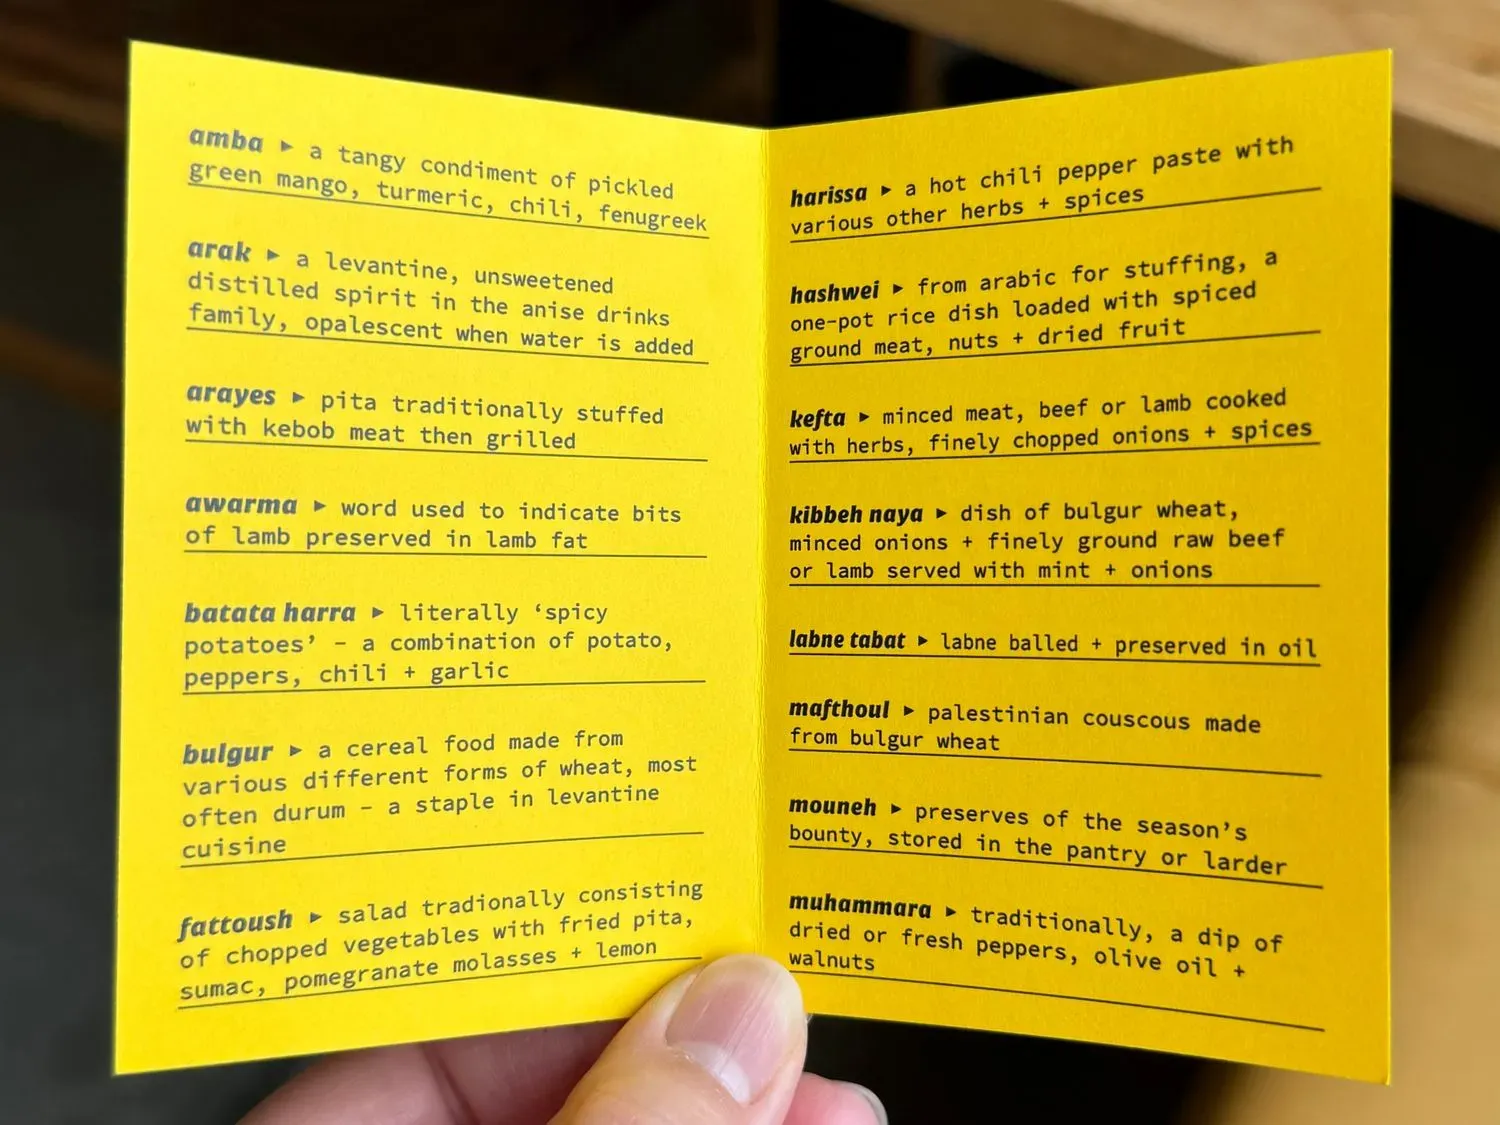 amba ▸ a tangy condiment of pickled
green mango, turmeric, chili, fenugreek
arak ▸ a levantine, unsweetened
distilled spirit in the anise drinks
family, opalescent when water is added
arayes ▸ pita traditionally stuffed
with kebob meat then grilled
awarma ▸ word used to indicate bits
of lamb preserved in lamb fat
batata harra ▸ literally ‘spicy
potatoes’ – a combination of potato,
peppers, chili + garlic
bulgur ▸ a cereal food made from
various different forms of wheat, most
often durum – a staple in levantine
cuisine
fattoush ▸ salad tradionally consisting
of chopped vegetables with fried pita,
sumac, pomegranate molasses + lemon
harissa ▸ a hot chili pepper paste with
various other herbs + spices
hashwei ▸ from arabic for stuffing, a
one-pot rice dish loaded with spiced
ground meat, nuts + dried fruit
kefta ▸ minced meat, beef or lamb cooked
with herbs, finely chopped onions + spices
kibbeh naya ▸ dish of bulgur wheat,
minced onions + finely ground raw beef
or lamb served with mint + onions
labne tabat ▸ labne balled + preserved in oil
mafthoul ▸ palestinian couscous made
from bulgur wheat
mouneh ▸ preserves of the season’s
bounty, stored in the pantry or larder
muhammara ▸ traditionally, a dip of
dried or fresh peppers, olive oil +
walnuts